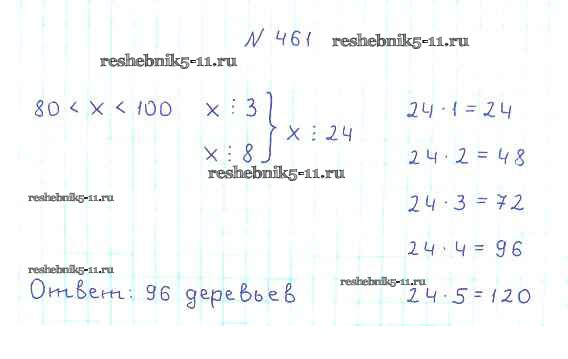 N 461 reshebnik5-11.ru
reshebnik5-11.ru
80 < x < 100 x ⋮ 3
x ⋮ 8 } x ⋮ 24
reshebnik5-11.ru
reshebnik5-11.ru
reshebnik5-11.ru
Ответ: 96 деревьев
24 · 1 = 24
24 · 2 = 48
24 · 3 = 72
24 · 4 = 96
reshebnik5-11.ru
24 · 5 = 120